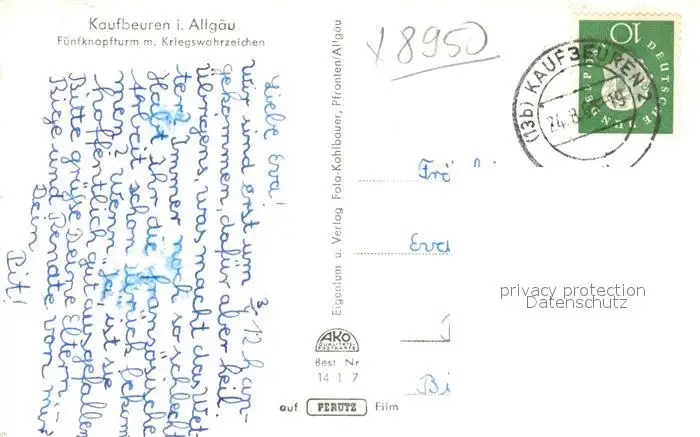 Kaufbeuren i. Allgäu
Fünfknopfturm m. Kriegswahrzeichen
Liebe Eva!
Wir sind erst um ¾ 12 h an-
gekommen, dafür aber heil.
Übrigens, was macht das Wet-
ter? Immer noch so schlecht
Habt ihr die französische
Arbeit schon zurück bekom
men? Wenn "Ja", ist sie
hoffentlich gut ausgefallen
Bitte grüße Deine Eltern,
Biege und Renate von mir
Dein
Pit!
Eigentum u. Verlag Foto-Kohlbauer, Pfronten/Allgäu
AKO
QUALITÄTS-
POSTKARTE
Best Nr
14 1 7
auf PERUTZ Film
x 8950
10
DEUTSCHE
BUNDESPOST
(13b) KAUFBEUREN 2
24.8.
Frä
Eva
Bi
privacy protection
Datenschutz